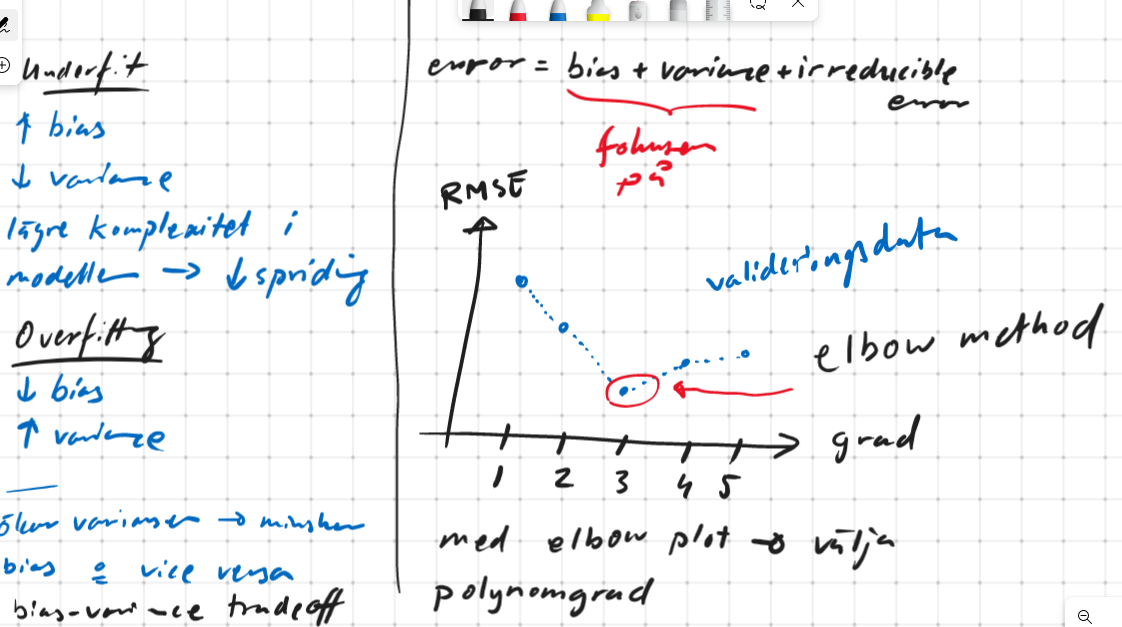 Underfit
↑ bias
↓ variance
lägre komplexitet i
modellen → ↓ spridning
Overfitting
↓ bias
↑ variance
ökar variansen → minskar
bias & vice versa
bias-variance tradeoff
error = bias + variance + irreducible
error
fokusen
på
RMSE
valideringsdata
elbow method
grad
1 2 3 4 5
med elbow plot → välja
polynomgrad